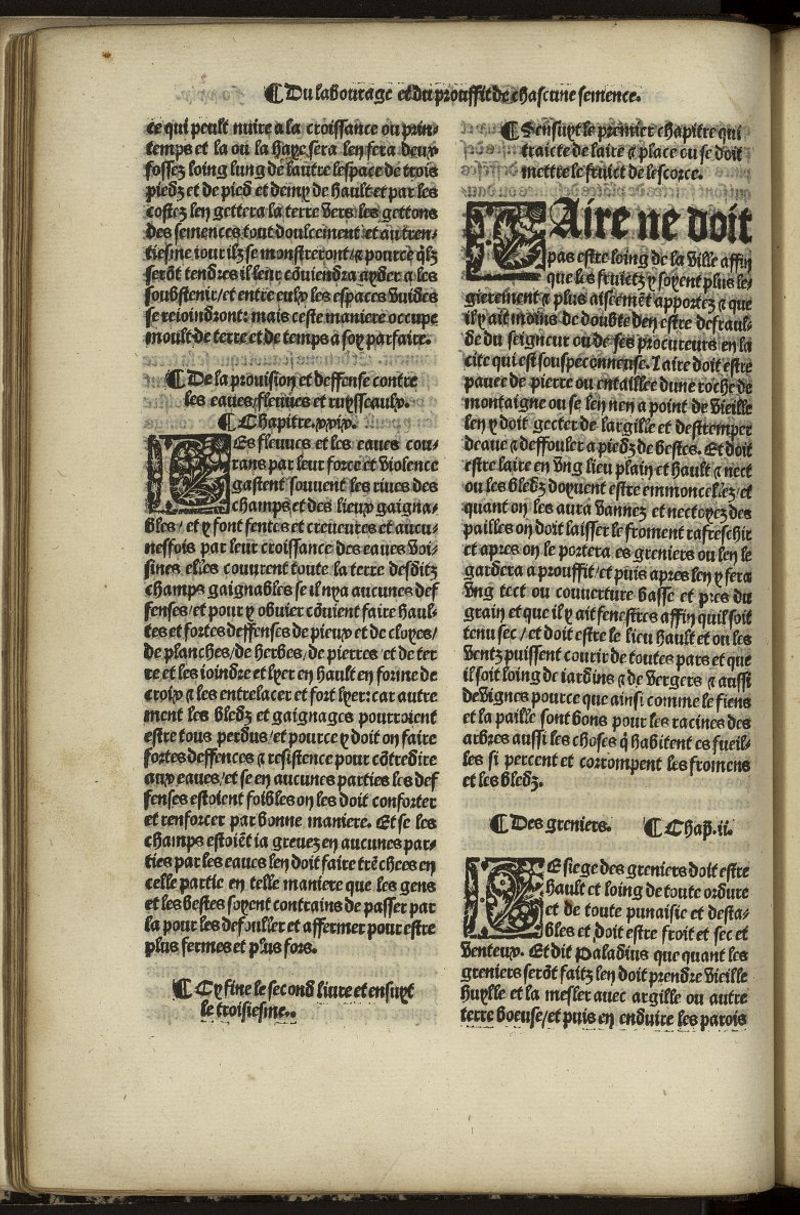 ¶ Du labourage et du prouffit de chascune semence.
ce qui peult nuire a la croissance ou prin-
temps et la ou la haye sera len fera deux
fossez loing lung de lautre lespace de trois
piedz et de pied et demy de hault et par les
costez len gettera la terre vers les gettons
des semences tout doulcement et au tren-
tiesme iour ilz se monstreront/⁊ pource q̄lz
serōt tendres il leur cōuiendra ayder a les
soubstenir/et entre eulx les espaces vuides
se reioindront: mais ceste maniere occupe
moult de terre et de temps a soy parfaire.
¶ De la prouision et deffense contre
les eaues/fleuues et ruysseaulx.
¶ Chapitre.xxix.
LEs fleuues et les eaues cou-
rans par leur force et violence
gastent souuent les riues des
champs/et des lieux gaigna-
bles/ et y font fentes et creueures et aucu-
neffois par leur croissance des eaues voi-
sines elles couurent toute la terre desditz
champs gaignables se il nya aucunes def
fenses/et pour y obuier cōuient faire haul-
tes et fortes deffenses de pieux et de cloyes/
de planches/de herbes/de pierres et de ter
re et les ioindre et lyer en hault en forme de
croix ⁊ les entrelacer et fort lyer: car autre
ment les bledz et gaignages pourroient
estre tous perdus/et pource y doit on faire
fortes deffences ⁊ resistence pour cōtredire
aux eaues/et se en aucunes parties les def
fenses estoient foibles on les doit conforter
et renforcer par bonne maniere. Et se les
champs estoiēt ia greuez en aucunes par-
ties par les eaues len doit faire trēchees en
celle partie en telle maniere que les gens
et les bestes soyent contrains de passer par
la pour les defouller et affermer pour estre
plus fermes et plus fors.
¶ Cy fine le second liure et ensuyt
le troisiesme..
¶ Sensuyt le premier chapitre qui
traicte de laire ⁊ place ou se doit
mettre le fruict de lescorce.
LAire ne doit
pas estre loing de la ville affin
que les fruictz y soyent plus le-
gierement ⁊ plus aiseemēt apportez ⁊ que
il y ait moins de doubte den estre defraul-
de du seigneur ou de ses procureurs en la
cite qui est souspeconneuse. Laire doit estre
pauee de pierre ou entaillee dune roche de
montaigne ou se len nen a point de vieille
len y doit gecter de largille et destremper
deaue ⁊ deffouler a piedz de bestes. Et doit
estre laire en vng lieu plain et hault ⁊ nect
ou les bledz doyuent estre emmoncellez/et
quant on les aura vannez et nectoyez des
pailles on doit laisser le froment rafreschir
et apres on le portera es greniers ou len le
gardera a prouffit/et puis apres len y fera
vng tect ou couuerture basse et pres du
grain et que il y ait fenestres affin quil soit
tenu sec/et doit estre le lieu hault et ou les
ventz puissent courir de toutes pars et que
il soit loing de iardins ⁊ de vergers ⁊ aussi
de vignes pource que ainsi comme le fiens
et la paille sont bons pour les racines des
arbres aussi les choses q̄ habitent es fueil-
les si percent et corrompent les fromens
et les bledz.
¶ Des greniers. ¶ Chap̄.ii.
LE siege des greniers doit estre
hault et loing de toute ordure
et de toute punaisie et desta-
bles et doit estre froit et sec et
venteux. Et dit Paladius que quant les
greniers serōt faitz len doit prendre vieille
huylle et la mesler auec argille ou autre
terre boeuse/et puis en enduire les parois